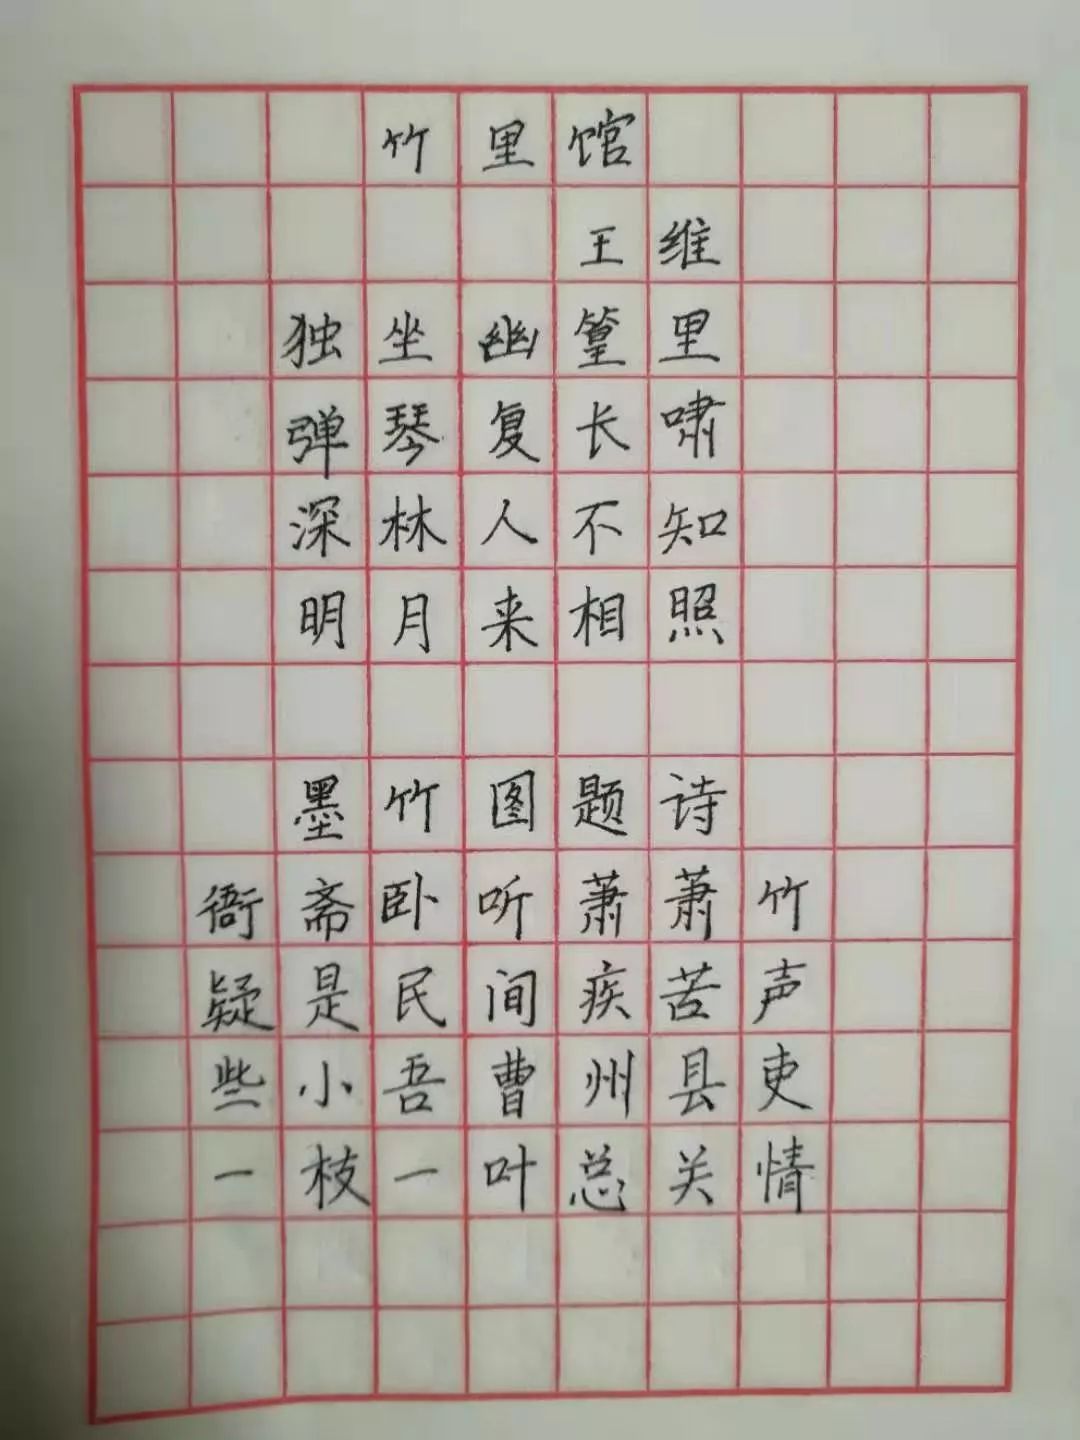 竹里馆
王维
独坐幽篁里
弹琴复长啸
深林人不知
明月来相照
墨竹图题诗
衙斋卧听萧萧竹
疑是民间疾苦声
些小吾曹州县吏
一枝一叶总关情